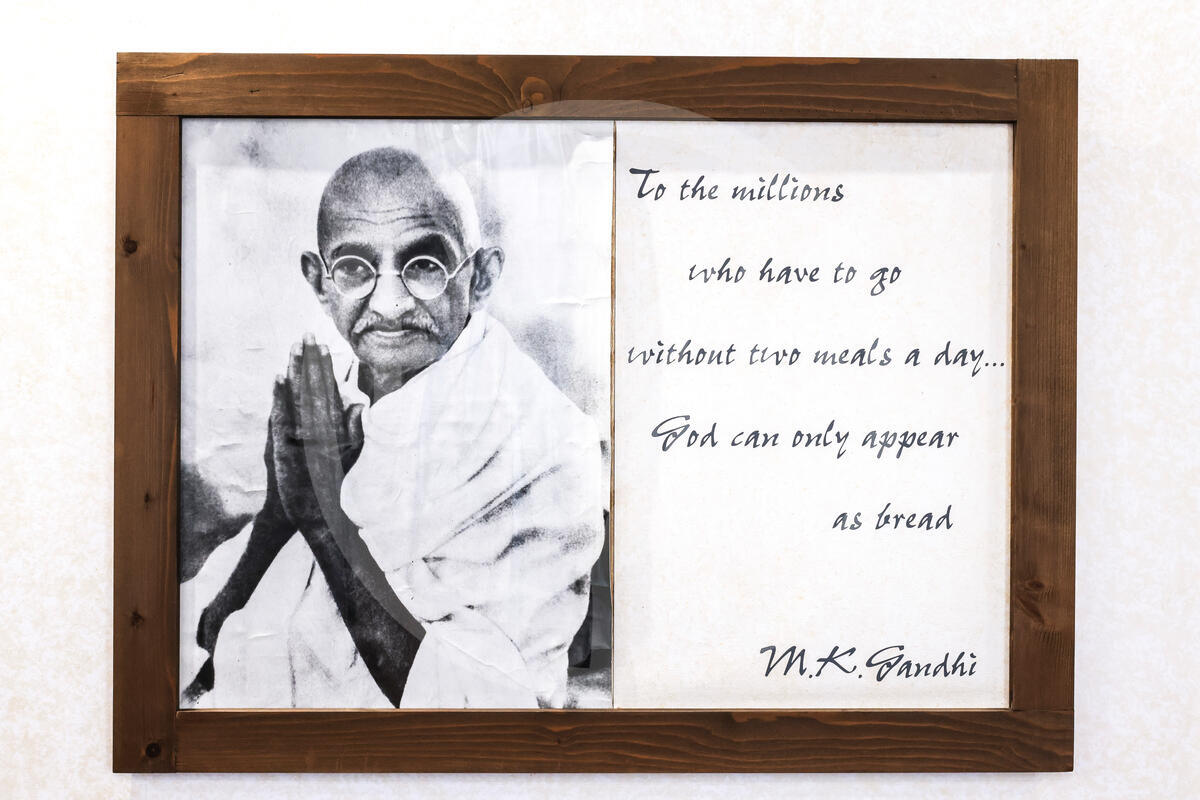 To the millions
who have to go
without two meals a day...
God can only appear
as bread
M.K. Gandhi